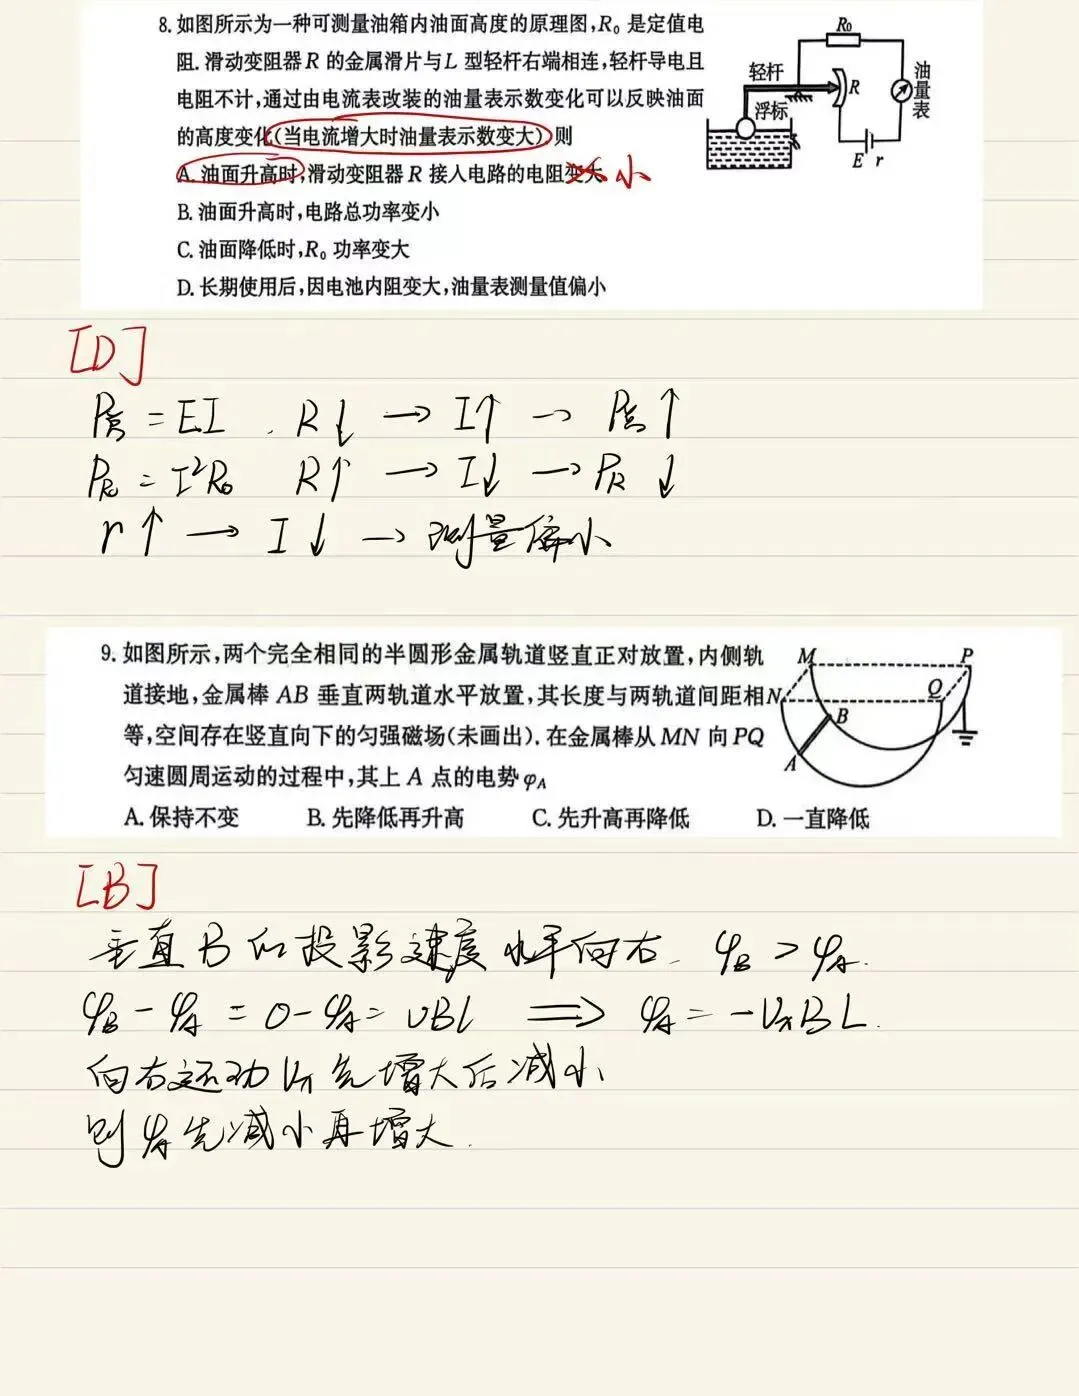 8. 如图所示为一种可测量油箱内油面高度的原理图,R₀ 是定值电
阻. 滑动变阻器 R 的金属滑片与 L 型轻杆右端相连,轻杆导电且
电阻不计,通过由电流表改装的油量表示数变化可以反映油面
的高度变化(当电流增大时油量表示数变大). 则
A. 油面升高时,滑动变阻器 R 接入电路的电阻变大 小
B. 油面升高时,电路总功率变小
C. 油面降低时,R₀ 功率变大
D. 长期使用后,因电池内阻变大,油量表测量值偏小
R₀
轻杆
R
油量表
浮标
E r
[D]
P总 = EI . R↓ → I↑ → P总↑
P_R₀ = I²R₀ R↑ → I↓ → P_R ↓
r↑ → I↓ → 测量偏小
9. 如图所示,两个完全相同的半圆形金属轨道竖直正对放置,内侧轨
道接地,金属棒 AB 垂直两轨道水平放置,其长度与两轨道间距相
等,空间存在竖直向下的匀强磁场(未画出). 在金属棒从 MN 向 PQ
匀速圆周运动的过程中,其上 A 点的电势 φA
A. 保持不变 B. 先降低再升高 C. 先升高再降低 D. 一直降低
M
P
N
Q
B
A
[B]
垂直B的投影速度水平向右. φB > φA.
φB - φA = 0 - φA = vBl ⟹ φA = -VxBL.
向右运动 Vx 先增大后减小
则 φA 先减小再增大.